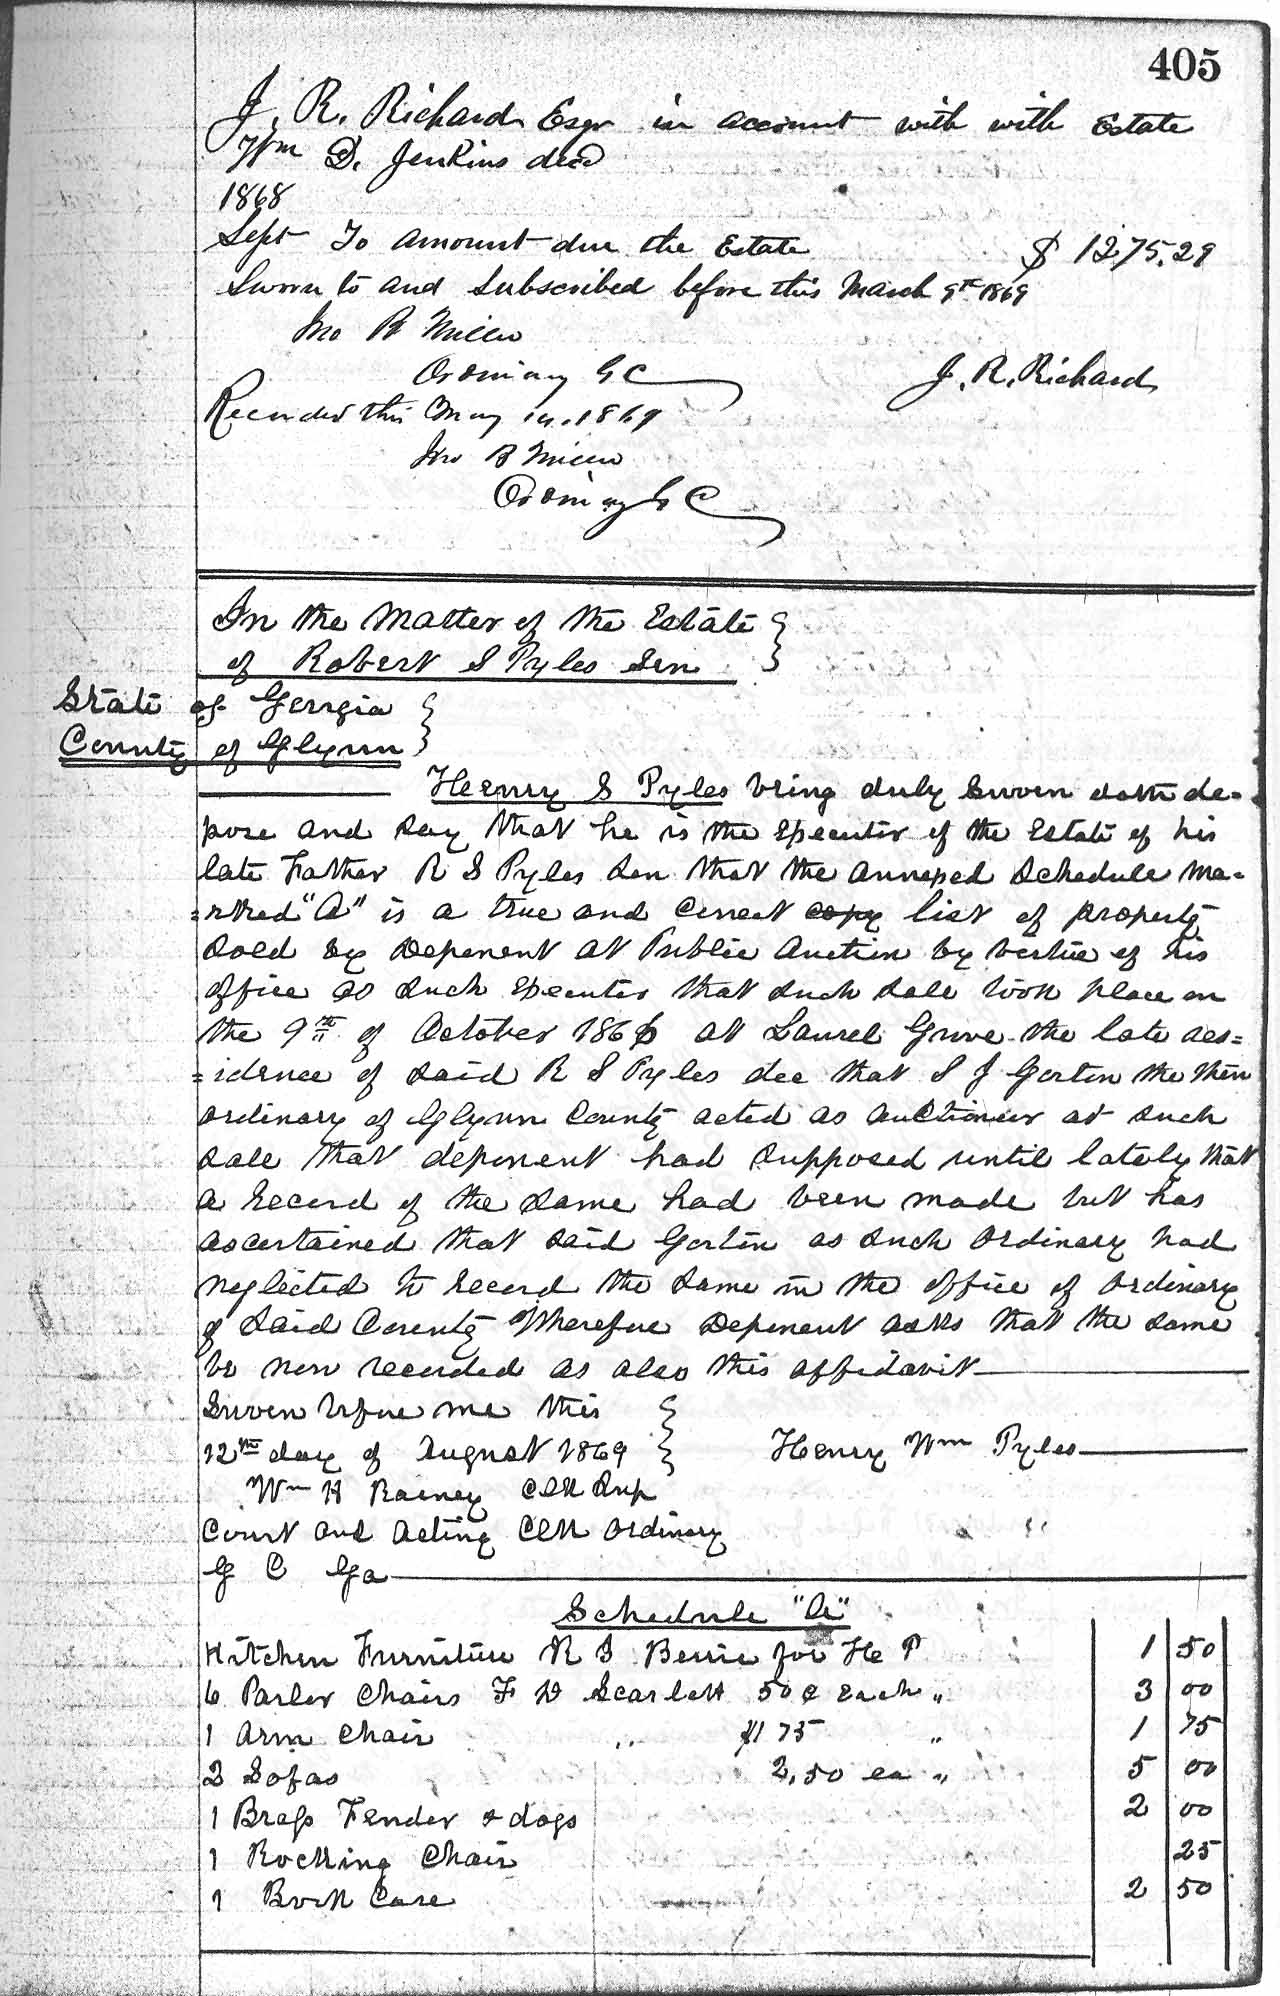 405
J. R. Richard Esqr in account with with Estate
Wm D. Jenkins decd
1868
Sept To amount due the Estate $ 1275.29
Sworn to and Subscribed before this March 9th 1869
Jno B Miller
Ordinary G C J. R. Richard
Recorded this May 14. 1869
Jno B Miller
Ordinary G C
In the Matter of the Estate
of Robert S Pyles Sen
State of Georgia
County of Glynn
Henry S Pyles being duly sworn doth de-
pose and say that he is the Executor of the Estate of his
late Father R S Pyles Sen that the annexed Schedule Ma-
=rked "A" is a true and correct copy list of property
sold by Deponent at Public Auction by vertue of his
office as such Executor that such sale took place on
the 9th of October 1866 at Laurel Grove the late res=
=idence of said R S Pyles dec that S J Gorton the then
ordinary of Glynn County acted as auctioneer at such
sale that deponent had supposed until lately that
a record of the same had been made but has
ascertained that said Gorton as such ordinary had
neglected to record the same in the office of ordinary
of said County Wherefore Deponent asks that the same
be now recorded as also this affidavit
Sworn before me this
12th day of August 1869 Henry Wm Pyles
Wm H Rainey Clk Sup
Court and Acting Clk Ordinary
G C Ga
Schedule "A"
Kitchen Furniture R S Berrie for He P 1 50
6 Parlor Chairs F D Scarlett 50 ¢ Each " 3 00
1 Arm Chair " $1 75 " 1 75
2 Sofas 2,50 ea " 5 00
1 Brass Fender & dogs 2 00
1 Rocking Chair 25
1 Book Case 2 50